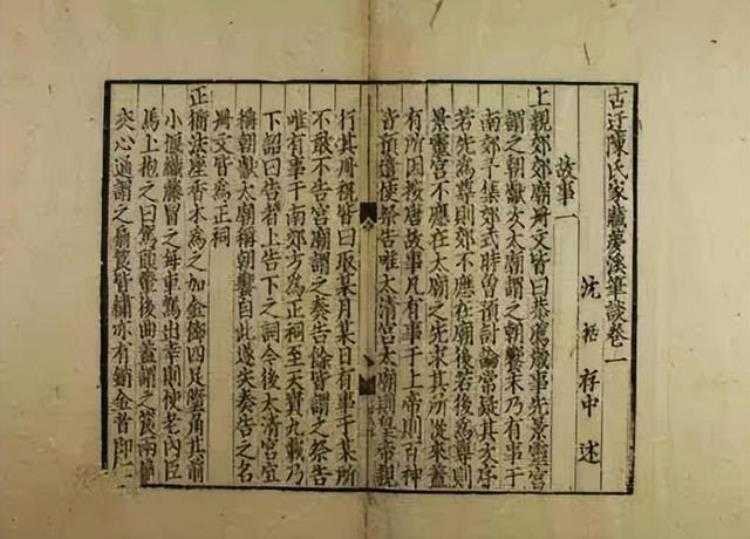 古迂陳氏家藏夢溪筆談卷一
沈括存中述
故事一
上親郊郊廟冊文皆曰恭薦歲事先景靈宮
謂之朝獻次太廟謂之朝饗末乃有事于
南郊予集郊式時曽預討論常疑其次序
若先為尊則郊不應在廟後若後為尊則
景靈宮不應在太廟之先求其所從來蓋
有所因按唐故事凡有事于上帝則百神
皆預遣使祭告唯太清宮太廟則皇帝親
行其冊祝皆曰取某月某日有事于某所
不敢不告宮廟謂之奏告餘皆謂之祭告
唯有事于南郊方為正祠至天寶九載乃
下詔曰告者上告下之詞今後太清宮宜
稱朝獻太廟稱朝饗自此遂失奏告之名
冊文皆為正祠
正衙法座香木為之加金飾四足墮角其前
小偃織藤冒之每車駕出幸則使老內臣
馬上抱之曰駕頭輦後曲蓋謂之筤兩扇
夾心通謂之扇筤皆繡亦有銷金者即